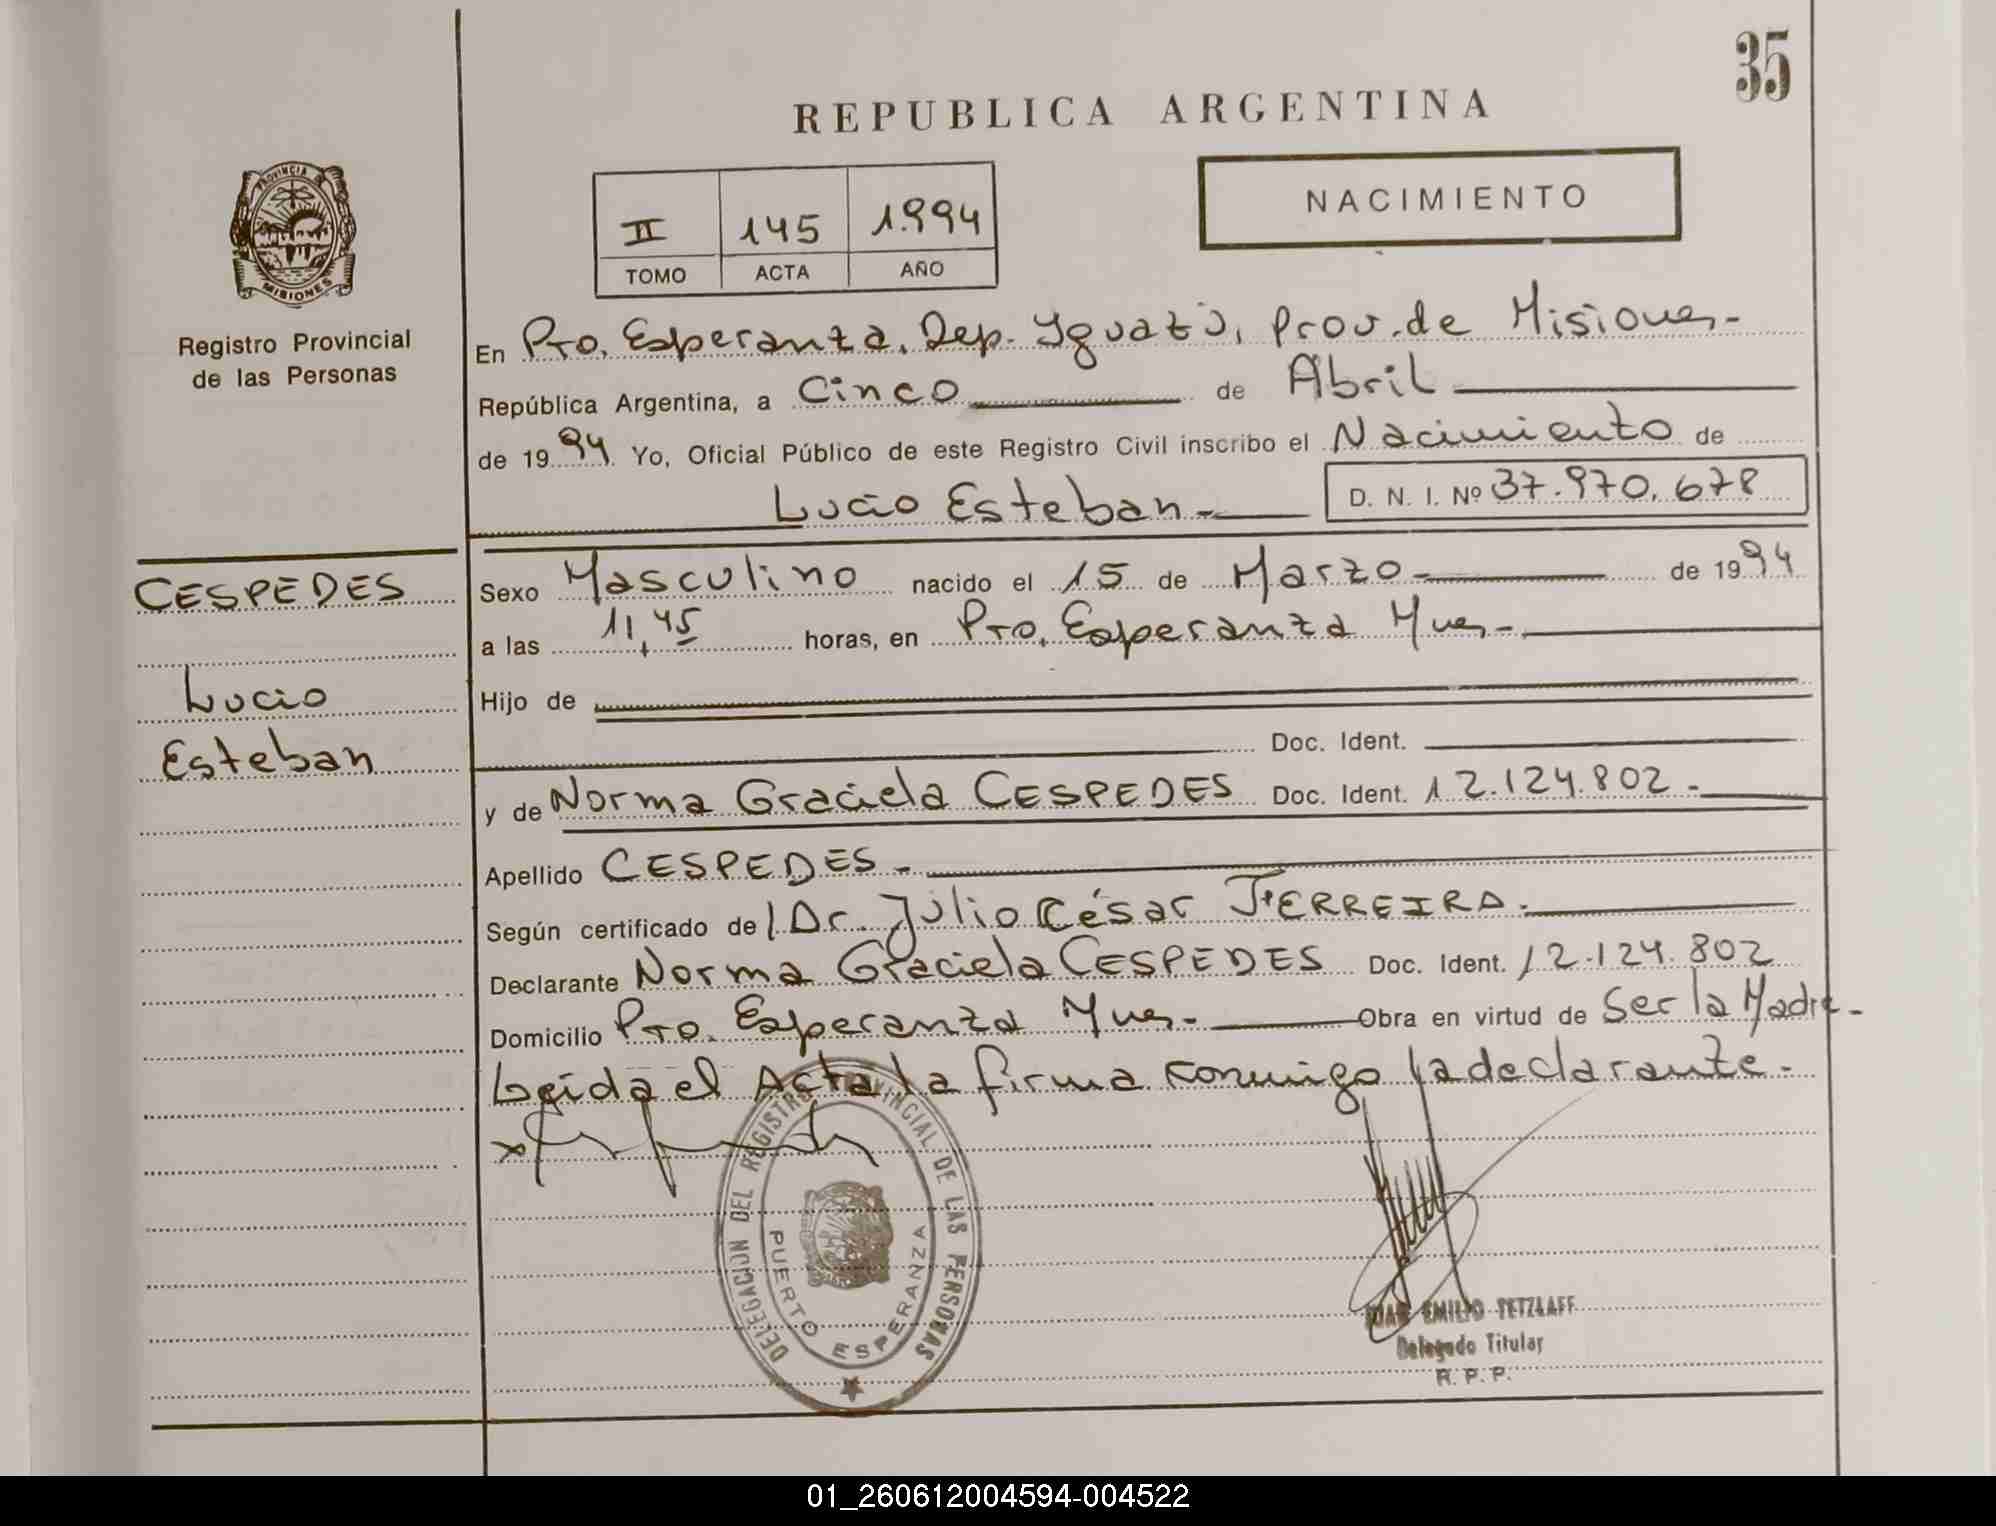 35
REPUBLICA ARGENTINA
PROVINCIA DE
MISIONES
II 145 1.994
TOMO ACTA AÑO
NACIMIENTO
Registro Provincial
de las Personas
En Pto. Esperanza, Dep. Iguazú, Prov. de Misiones.-
República Argentina, a Cinco de Abril
de 1994 Yo, Oficial Público de este Registro Civil inscribo el Nacimiento de
Lucio Esteban.- D. N. I. Nº 37.970.678
CESPEDES
Lucio
Esteban
Sexo Masculino nacido el 15 de Marzo.- de 1994
a las 11,45 horas, en Pto. Esperanza Mnes.-
Hijo de
Doc. Ident.
y de Norma Graciela CESPEDES Doc. Ident. 12.124.802.-
Apellido CESPEDES.-
Según certificado de / Dr. Julio César FERREIRA.
Declarante Norma Graciela CESPEDES Doc. Ident. 12.124.802
Domicilio Pto. Esperanza Mnes.- Obra en virtud de Ser la Madre.-
Leida el Acta la firma conmigo la declarante.-
DELEGACION DEL REGISTRO PROVINCIAL DE LAS PERSONAS
PUERTO ESPERANZA
JUAN EMILIO TETZLAFF
Delegado Titular
R. P. P.
01_260612004594-004522